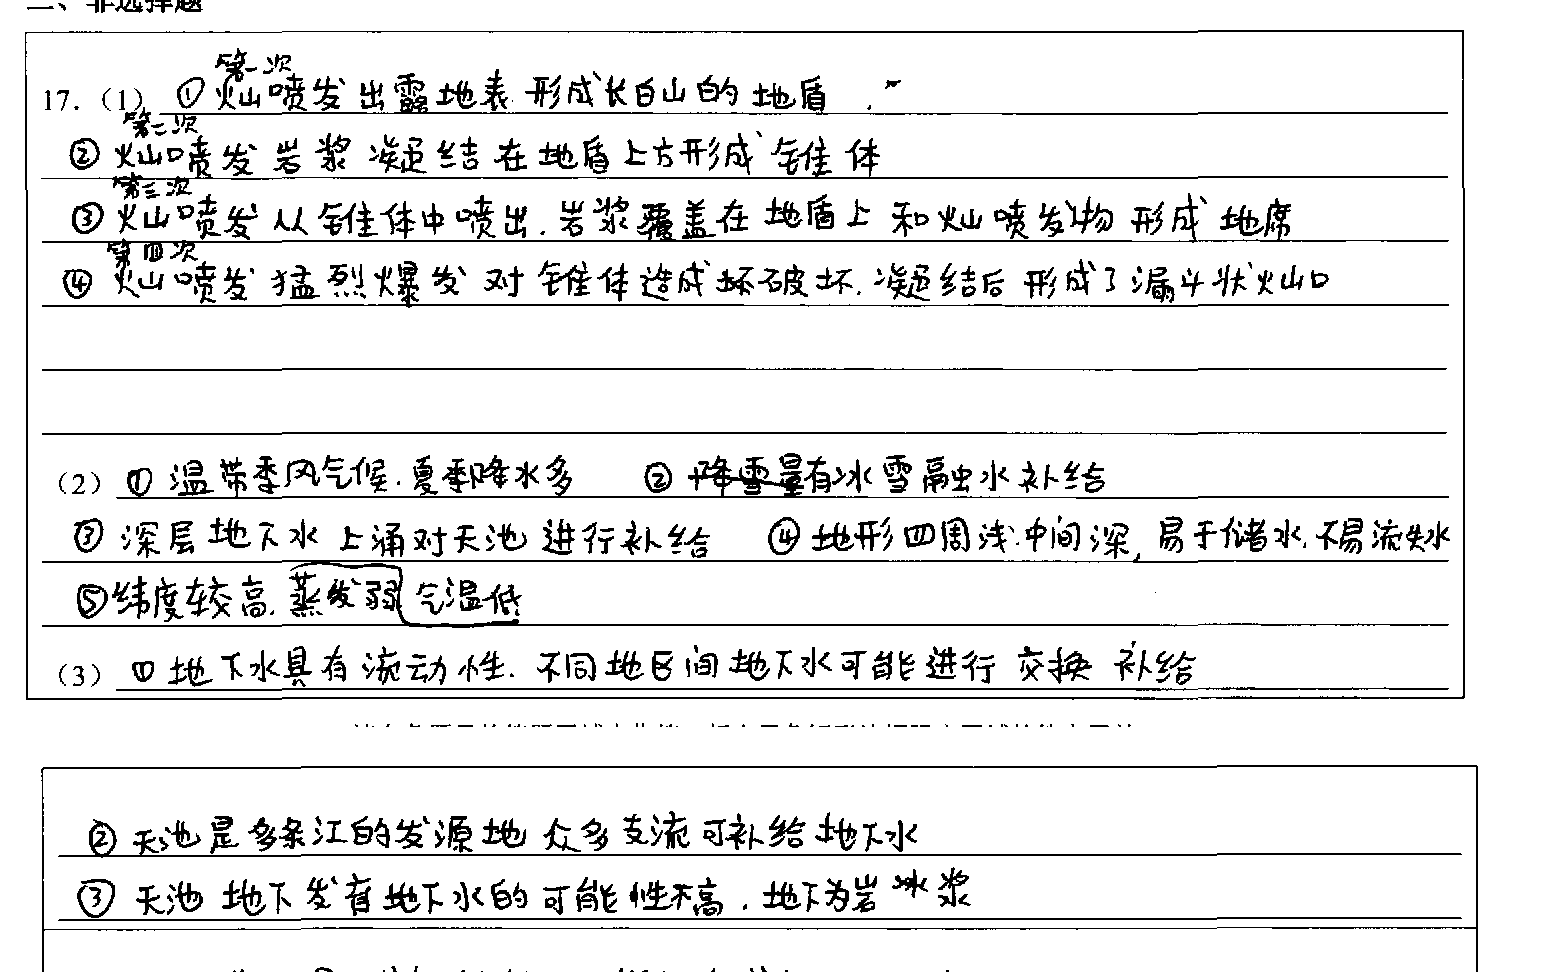 二、非选择题
第一次
17.（1）①火山喷发出露地表形成长白山的地盾.
第二次
②火山口喷发岩浆凝结在地盾上方形成锥体
第三次
③火山喷发从锥体中喷出.岩浆覆盖在地盾上和火山喷发物形成地席
第四次
④火山喷发猛烈爆发对锥体造成坏破坏.凝结后形成了漏斗状火山口
（2）①温带季风气候.夏季降水多 ②降雪量有冰雪融水补给
③深层地下水上涌对天池进行补给 ④地形四周浅.中间深,易于储水.不易流失水
⑤纬度较高.蒸发弱气温低
（3）①地下水具有流动性.不同地区间地下水可能进行交换补给
②天池是多条江的发源地众多支流可补给地下水
③天池地下发育地下水的可能性不高.地下为岩浆